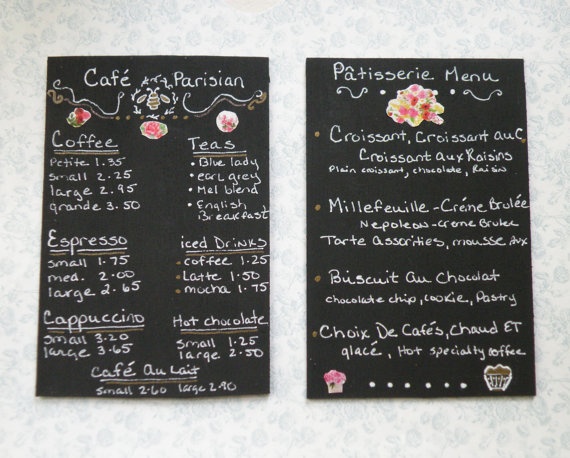 Café Parisian
Coffee
Petite 1.35
small 2.25
large 2.95
grande 3.50
Teas
• Blue lady
• earl grey
• Mel blend
• English
Breakfast
Espresso
small 1.75
med. 2.00
large 2.65
iced Drinks
• coffee 1.25
• Latte 1.50
• mocha 1.75
Cappuccino
small 3.20
large 3.65
Hot chocolate
small 1.25
large 2.50
Café Au Lait
small 2.60 large 2.90
Pâtisserie Menu
• Croissant, Croissant auC,
Croissant aux Raisins
Plain croissant, chocolate, Raisin
• Millefeuille - Créne Brulée
Nepoleon - Creme Brulee
Tarte Assorities, mousse aux
• Biscuit Au Chocolat
chocolate chip, cookie, Pastry
• Choix De Cafés, Chaud ET
glacé, Hot specialty coffee